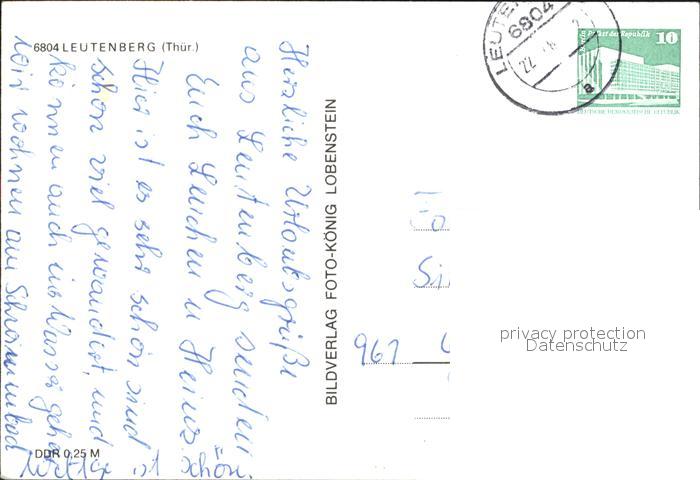 6804 LEUTENBERG (Thür.)
Herzliche Urlaubsgrüße
aus Leutenberg senden
Euch Lenchen u Heinz.
Hier ist es sehr schön sind
schon viel gewandert, und
können auch ins Wasser gehen
wir wohnen am Schwimmbad
ist schön.
DDR 0,25 M
BILDVERLAG FOTO-KÖNIG LOBENSTEIN
6804
22.
a
10
Palast der Republik
DEUTSCHE DEMOKRATISCHE REPUBLIK
961
privacy protection
Datenschutz